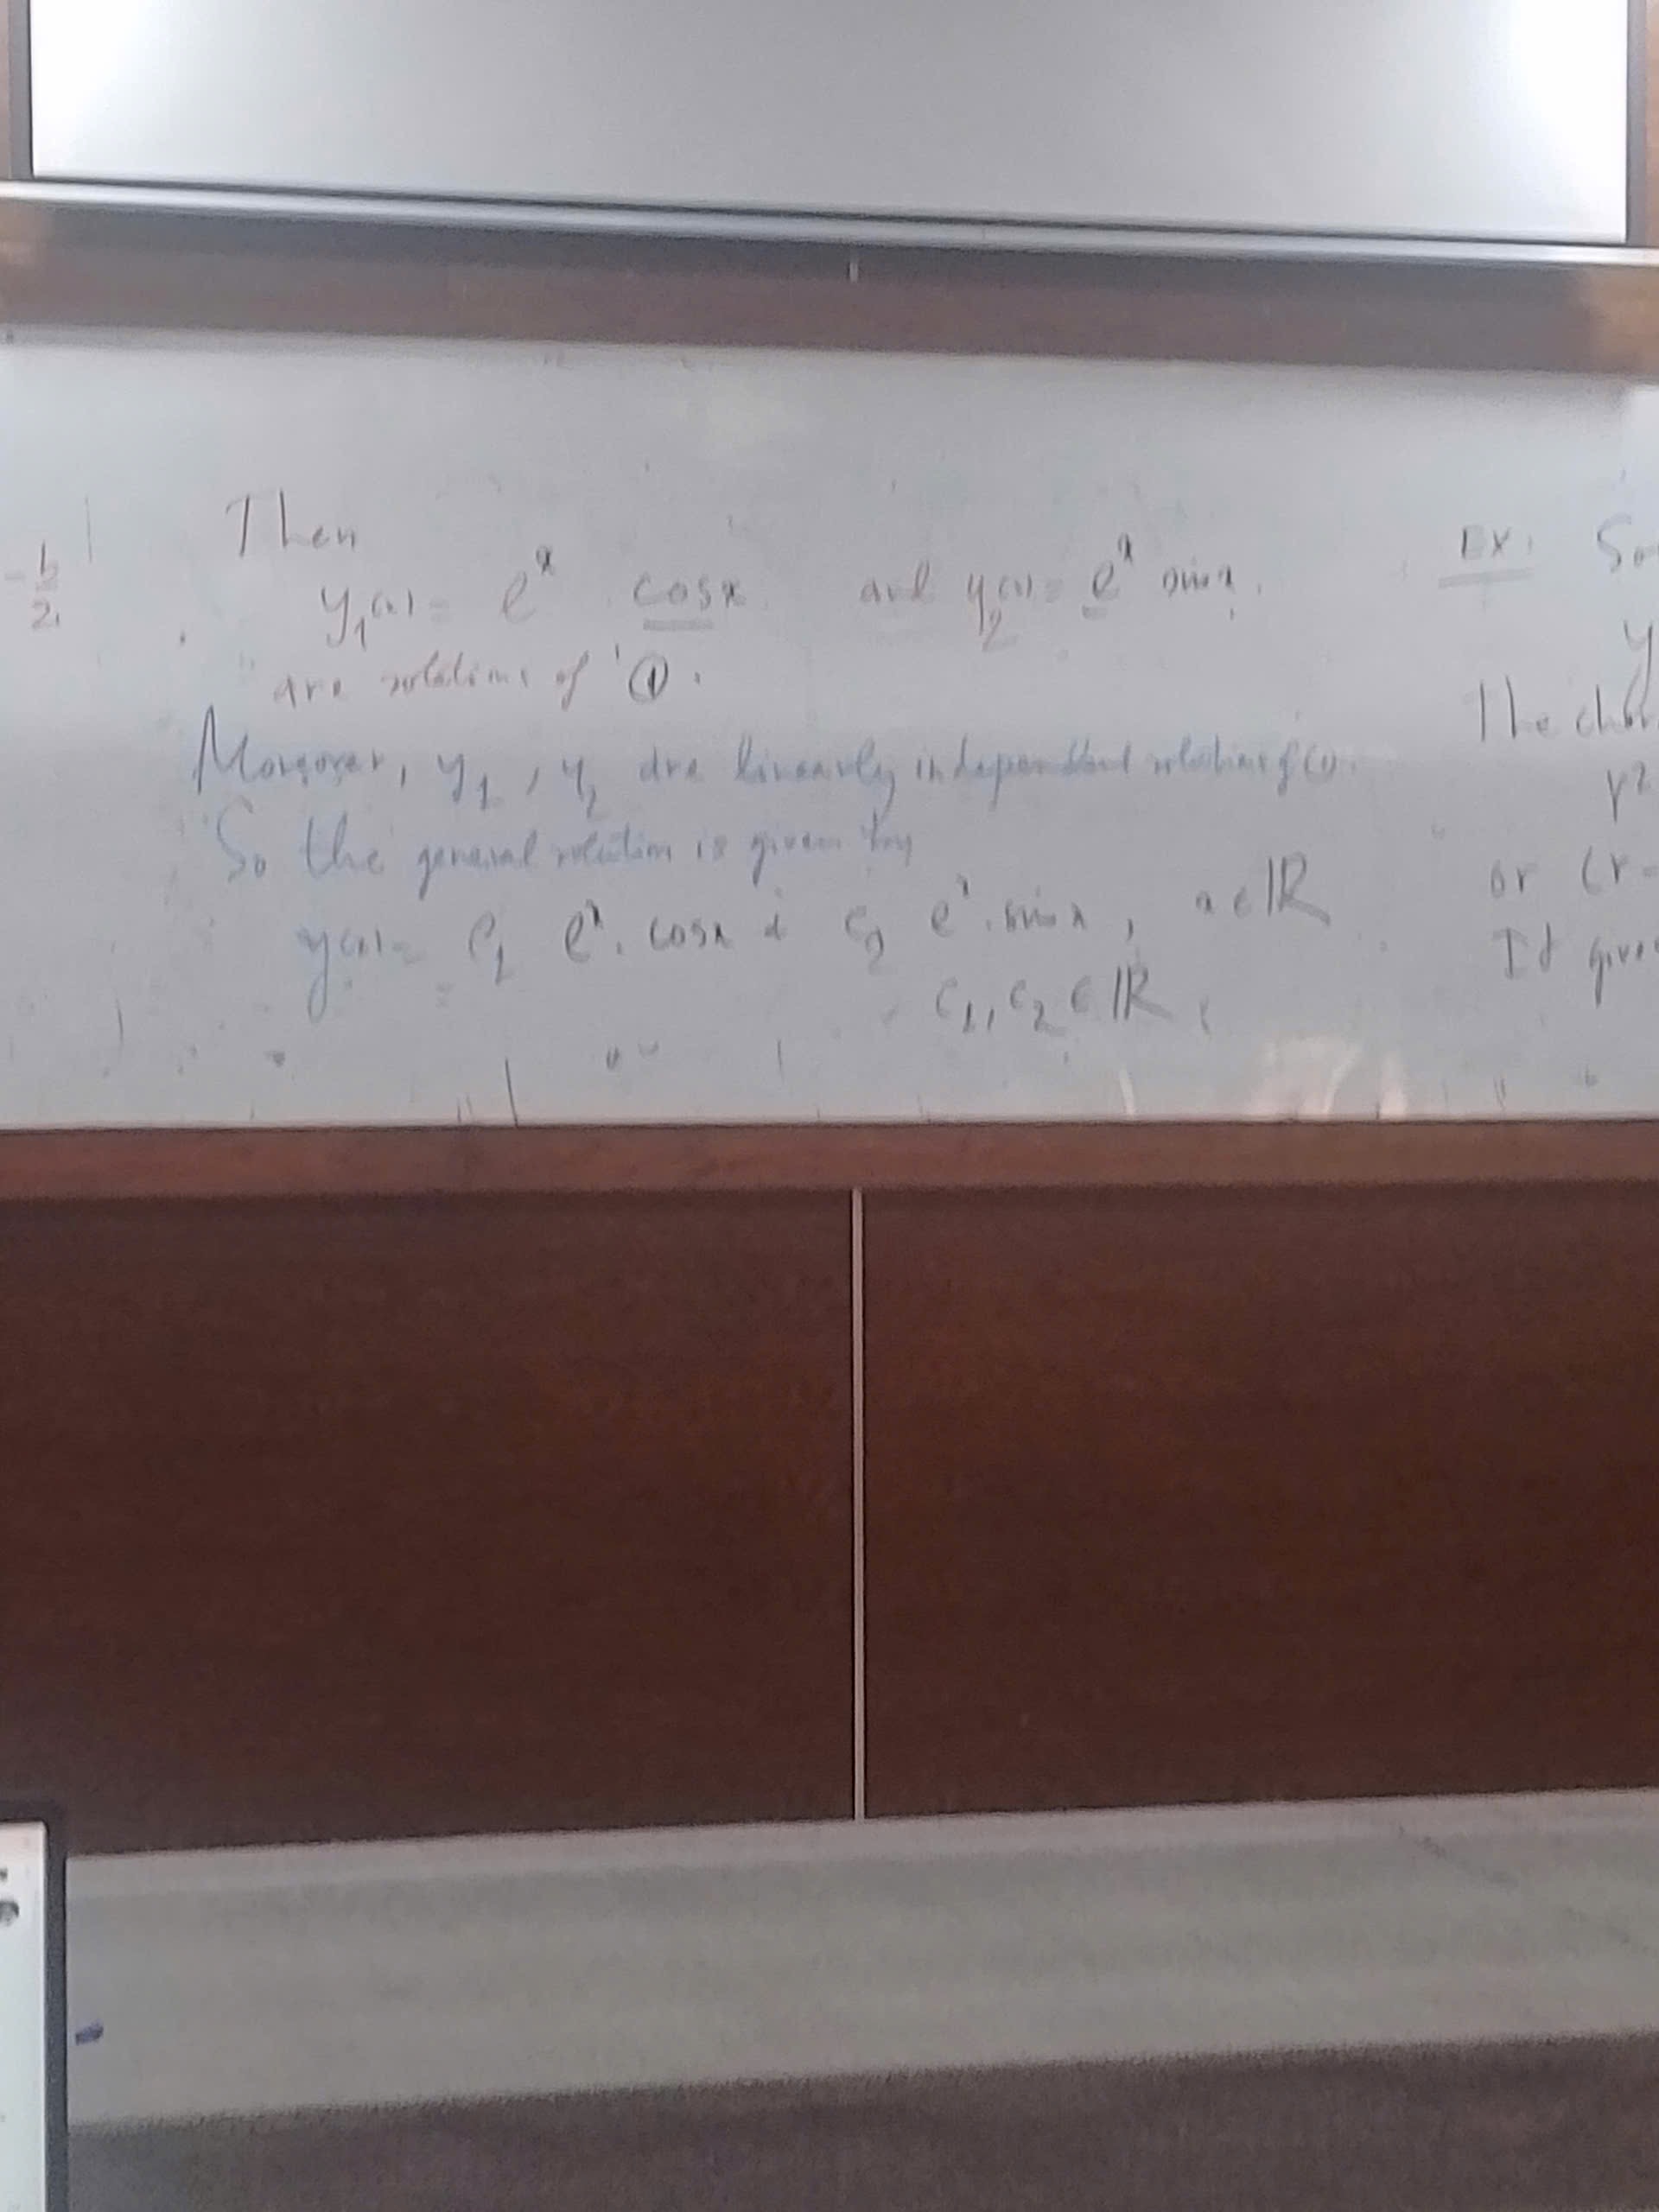 -b/2
Then
y₁(x) = eˣ cosx and y₂(x) = eˣ sinx.
are solutions of ①.
Moreover, y₁, y₂ are linearly independent solutions of (1).
So the general solution is given by
y(x) = c₁ eˣ. cosx + c₂ eˣ. sinx, x ∈ ℝ
c₁, c₂ ∈ ℝ.
EX: So
y
The char
r²
or (r-
It give